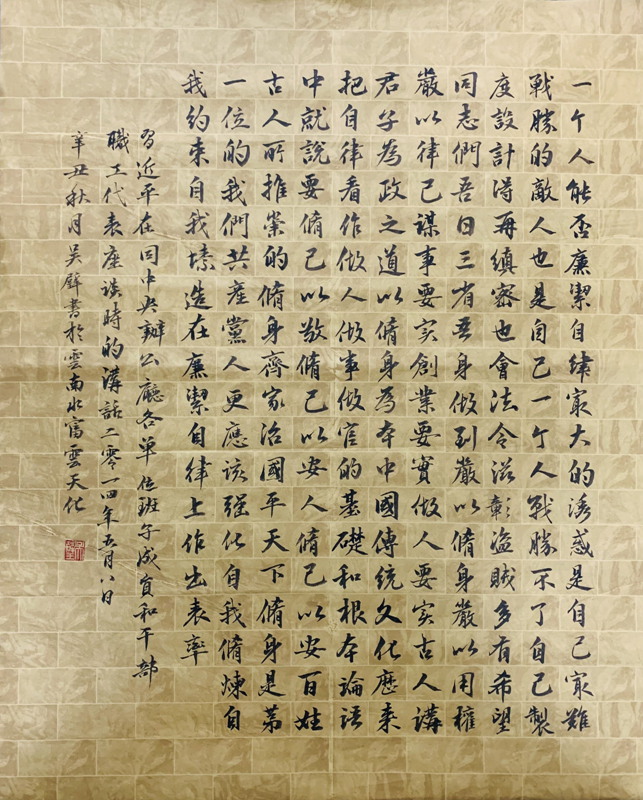 一个人能否廉潔自律最大的誘惑是自己最難
戰勝的敵人也是自己一个人戰勝不了自己製
度設計得再縝密也會法令滋彰盜賊多有希望
同志們吾日三省吾身做到嚴以脩身嚴以用權
嚴以律己謀事要实創業要實做人要实古人講
君子為政之道以脩身為本中國傳統文化歷来
把自律看作做人做事做官的基礎和根本論語
中就說要脩己以敬脩己以安人脩己以安百姓
古人所推崇的脩身齊家治國平天下脩身是第
一位的我們共産黨人更應該强化自我脩煉自
我約束自我塑造在廉潔自律上作出表率
習近平在同中央辦公廳各单位班子成員和干部
職工代表座談時的講話二零一四年五月八日
辛丑秋月吴群書於雲南水富雲天化